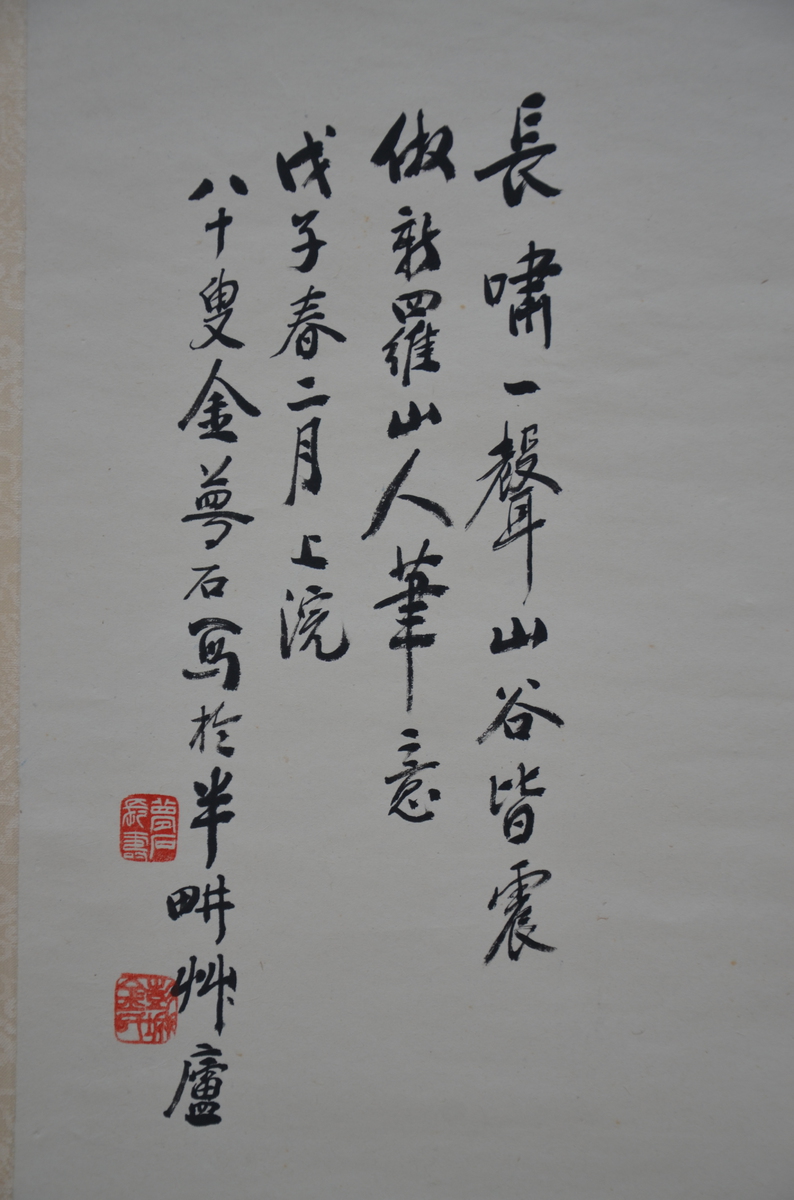 長嘯一聲山谷皆震
倣新羅山人筆意
戊子春二月上浣
八十叟金夢石寫於半畊艸廬
夢石
長壽